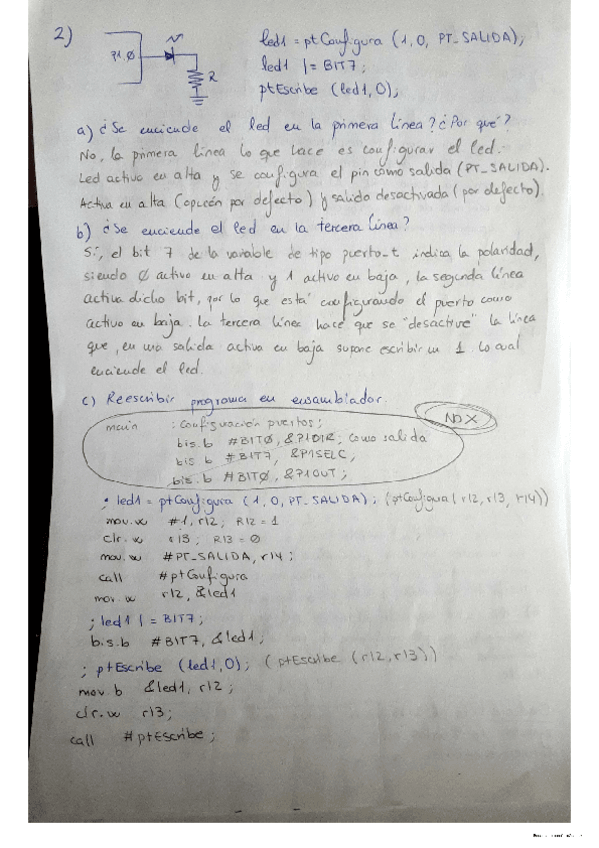 2)
P1.0
R
led1 = ptConfigura (1,0, PT_SALIDA);
led1 |= BIT7;
ptEscribe (led1,0);
a) ¿Se enciende el led en la primera línea? ¿Por qué?
No, la primera línea lo que hace es configurar el led.
Led activo en alta y se configura el pin como salida (PT_SALIDA).
Activa en alta (opción por defecto) y salida desactivada (por defecto).
b) ¿Se enciende el led en la tercera línea?
Sí, el bit 7 de la variable de tipo puerto_t indica la polaridad,
siendo 0 activo en alta y 1 activo en baja, la segunda línea
activa dicho bit, por lo que está configurando el puerto como
activo en baja. La tercera línea hace que se "desactive" la línea
que, en una salida activa en baja supone escribir un 1. Lo cual
enciende el led.
c) Reescribir programa en ensamblador.
NO X
main ; Configuración puertos;
bis.b #BIT0, &P1DIR; como salida
bis b #BIT7, &P1SELC,
bis.b #BIT0, &P1OUT;
; led1 = ptConfigura (1,0, PT_SALIDA); (ptConfigura (r12, r13, r14))
mov.w #1, r12; R12 = 1
clr.w r13; R13 = 0
mov.w #PT_SALIDA, r14;
call #ptConfigura
mov.w r12, &led1
; led1 |= BIT7;
bis.b #BIT7, &led1;
; ptEscribe (led1,0); (ptEscribe (r12,r13))
mov.b &led1, r12;
clr.w r13;
call #ptEscribe;